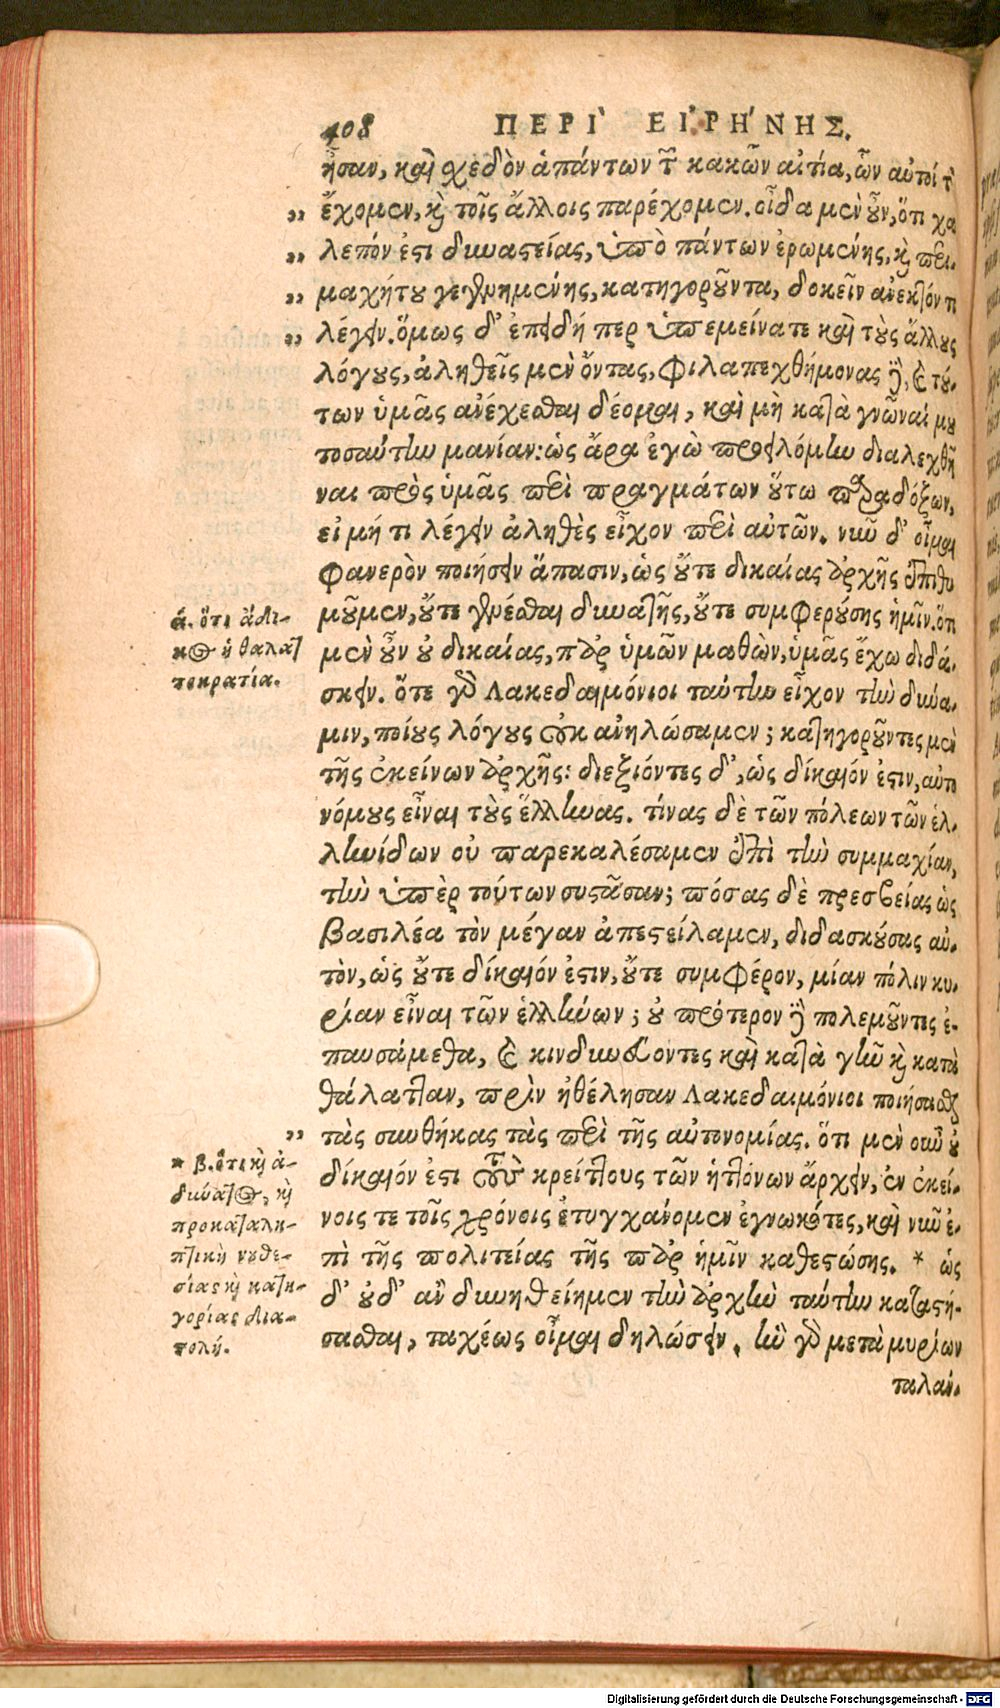 408 ΠΕΡῚ ΕΙ᾿ΡΉΝΗΣ.
ἦσαν, καὶ σχεδὸν ἁπάντων τ῀ κακῶν αἰτία, ὧν αὐτοί τ᾽
" ἔχομεν, κὶ τοῖς ἄλλοις παρέχομεν. οἶδα μὲν οὖν, ὅτι χα
" λεπόν ἐστι δυναστείας, ὑπὸ πάντων ἐρωμένης, κὶ περι-
" μαχήτου γεγενημένης, κατηγοροῦντα, δοκεῖν ἀνεκτόν τι
" λέγειν. ὅμως δ᾽ ἐπειδή περ ὑπεμείνατε καὶ τοὺς ἄλλους
λόγους, ἀληθεῖς μὲν ὄντας, φιλαπεχθήμονας δὲ, καὶ τού-
των ὑμᾶς ἀνέχεσθαι δέομαι, καὶ μὴ καταγνῶναί μου
τοσαύτην μανίαν: ὡς ἄρα ἐγὼ προειλόμην διαλεχθῆ
ναι πρὸς ὑμᾶς περὶ πραγμάτων οὕτω παραδόξων,
εἰ μή τι λέγειν ἀληθὲς εἶχον περὶ αὐτῶν. νῦν δ᾽ οἶμαι
φανερὸν ποιήσειν ἅπασιν, ὡς οὔτε δικαίας ἀρχῆς ἐπιθυ
μοῦμεν, οὔτε γενέσθαι δυνατῆς, οὔτε συμφερούσης ἡμῖν. ὅτι
μὲν οὖν οὐ δικαίας, παρ᾽ ὑμῶν μαθὼν, ὑμᾶς ἔχω διδά-
σκειν. ὅτε γὰρ Λακεδαιμόνιοι ταύτην εἶχον τὴν δύνα-
μιν, ποίους λόγους οὐκ ἀνηλώσαμεν; κατηγοροῦντες μὲν
τῆς ἐκείνων ἀρχῆς: διεξιόντες δ᾽, ὡς δίκαιόν ἐστιν, αὐτο
νόμους εἶναι τοὺς ἕλληνας. τίνας δὲ τῶν πόλεων τῶν ἑλ-
ληνίδων οὐ παρεκαλέσαμεν ἐπὶ τὴν συμμαχίαν,
τὴν ὑπὲρ τούτων συστᾶσαν; πόσας δὲ πρεσβείας ὡς
βασιλέα τὸν μέγαν ἀπεστείλαμεν, διδασκούσας αὐ-
τὸν, ὡς οὔτε δίκαιόν ἐστιν, οὔτε συμφέρον, μίαν πόλιν κυ-
ρίαν εἶναι τῶν ἑλλήνων; οὐ πρότερον δὲ πολεμοῦντες ἐ-
παυσάμεθα, καὶ κινδυνεύοντες καὶ κατὰ γῆν κὶ κατὰ
θάλατταν, πρὶν ἠθέλησαν Λακεδαιμόνιοι ποιήσασθαι
" τὰς συνθήκας τὰς περὶ τῆς αὐτονομίας. ὅτι μὲν οὖν οὐ
δίκαιόν ἐστι τοὺς κρείττους τῶν ἡττόνων ἄρχειν, ἐν ἐκεί-
νοις τε τοῖς χρόνοις ἐτυγχάνομεν ἐγνωκότες, καὶ νῦν ἐ-
πὶ τῆς πολιτείας τῆς παρ᾽ ἡμῖν καθεστώσης. * ὡς
δ᾽ οὐδ᾽ ἂν δυνηθείημεν τὴν ἀρχὴν ταύτην καταστή-
σασθαι, ταχέως οἶμαι δηλώσειν. ἣν γὰρ μετὰ μυρίων
ταλάν-
ά. ὅτι ἄδι-
κος ἡ θαλατ
τοκρατία.
* β. ὅτι κὶ ἀ-
δύνατος, κὶ
προκαταλη-
πτικὴ νουθε-
σίας κὶ κατη-
γορίας δια-
στολή.
Digitalisierung gefördert durch die Deutsche Forschungsgemeinschaft - DFG